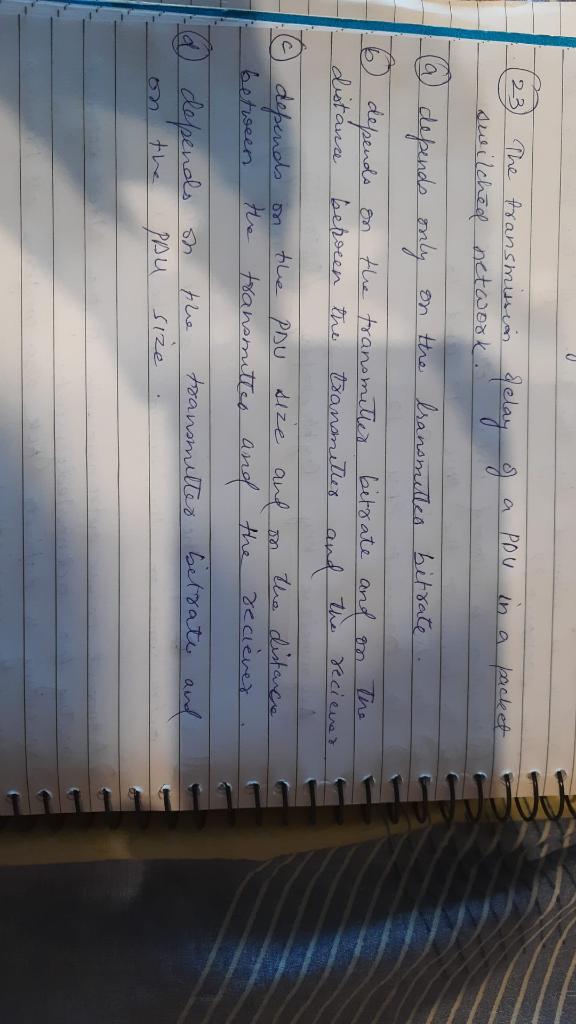 (23) The transmission delay of a PDU in a packet
switched network.
(a) depends only on the transmitter bitrate.
(b) depends on the transmitter bitrate and on the
distance between the transmitter and the reciever.
(c) depends on the PDU size and on the distance
between the transmitter and the reciever.
(d) depends on the transmitter bitrate and
on the PDU size.